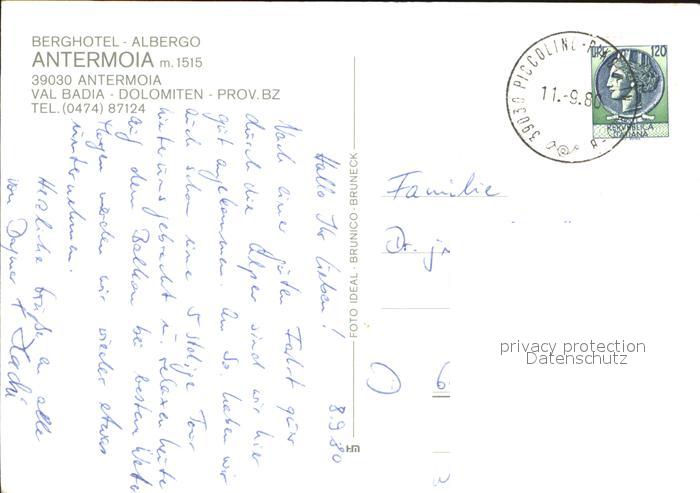 BERGHOTEL - ALBERGO
ANTERMOIA m. 1515
39030 ANTERMOIA
VAL BADIA - DOLOMITEN - PROV. BZ
TEL. (0474) 87124
8.9.80
Hallo Ihr Lieben!
Nach einer guten Fahrt quer
durch die Alpen sind wir hier
gut angekommen. Am So. haben wir
auch schon eine 5 stdige Tour
hinter uns gebracht u. relaxen heute
auf dem Balkon bei besten Wetter
Morgen werden wir wieder etwas
unternehmen.
Herzliche Grüße an alle
von Dagmar +
FOTO IDEAL - BRUNICO - BRUNECK
39030 PICCOLINO
11.-9.80
LIRE 120
REPVBBLICA
ITALIANA
Familie
Dr.
6
privacy protection
Datenschutz